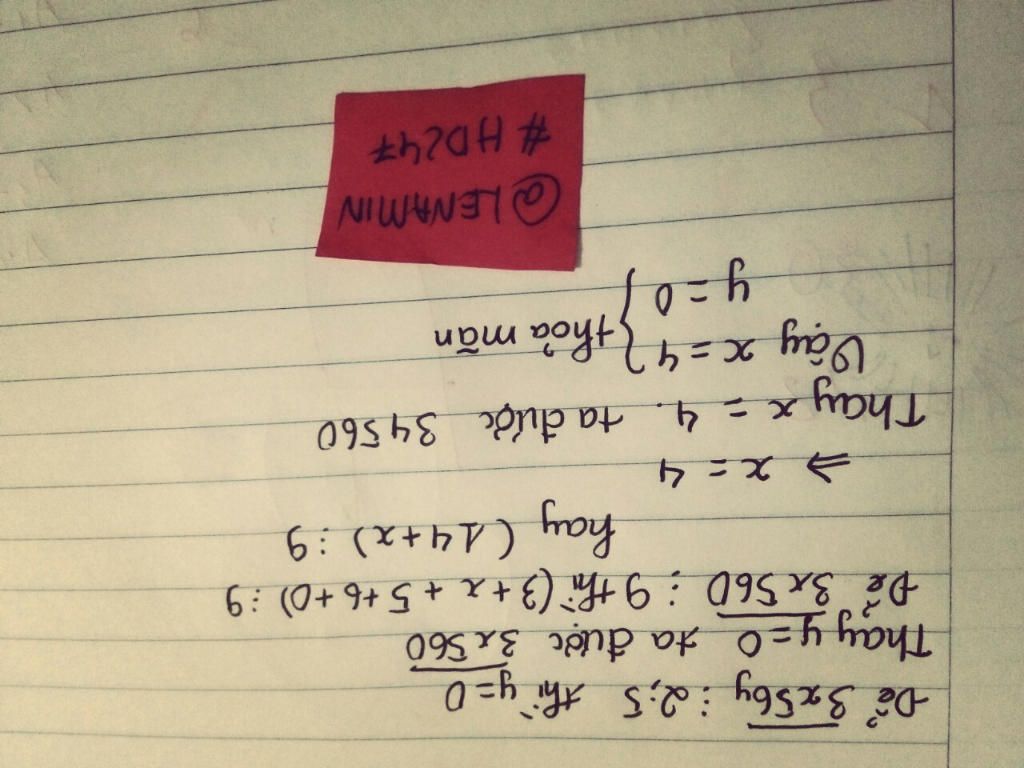 Để 3x56y ⋮ 2;5 thì y=0
Thay y=0 ta được 3x560
Để 3x560 ⋮ 9 thì (3+x+5+6+0) ⋮ 9
hay (14+x) ⋮ 9
⇒ x = 4
Thay x = 4. ta được 34560
Vậy x = 4 } thỏa mãn
y = 0
@LENAMIN
#HD247